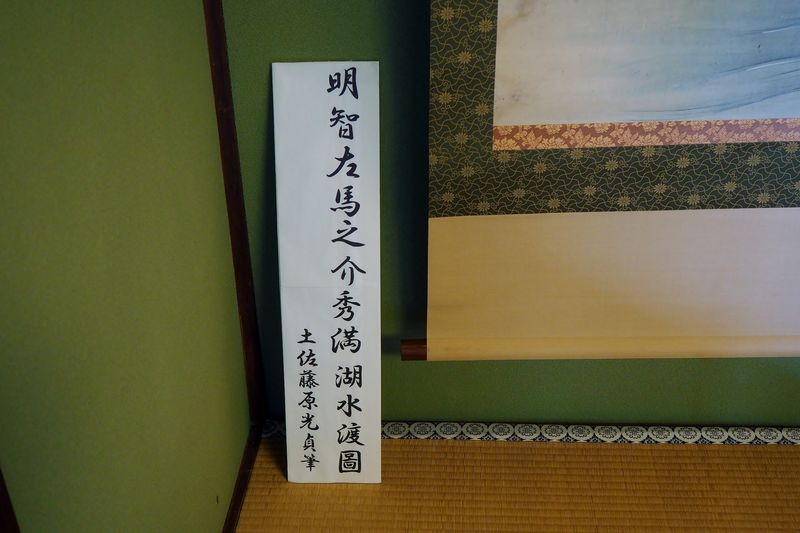 明智左馬之介秀満湖水渡圖
土佐藤原光貞筆